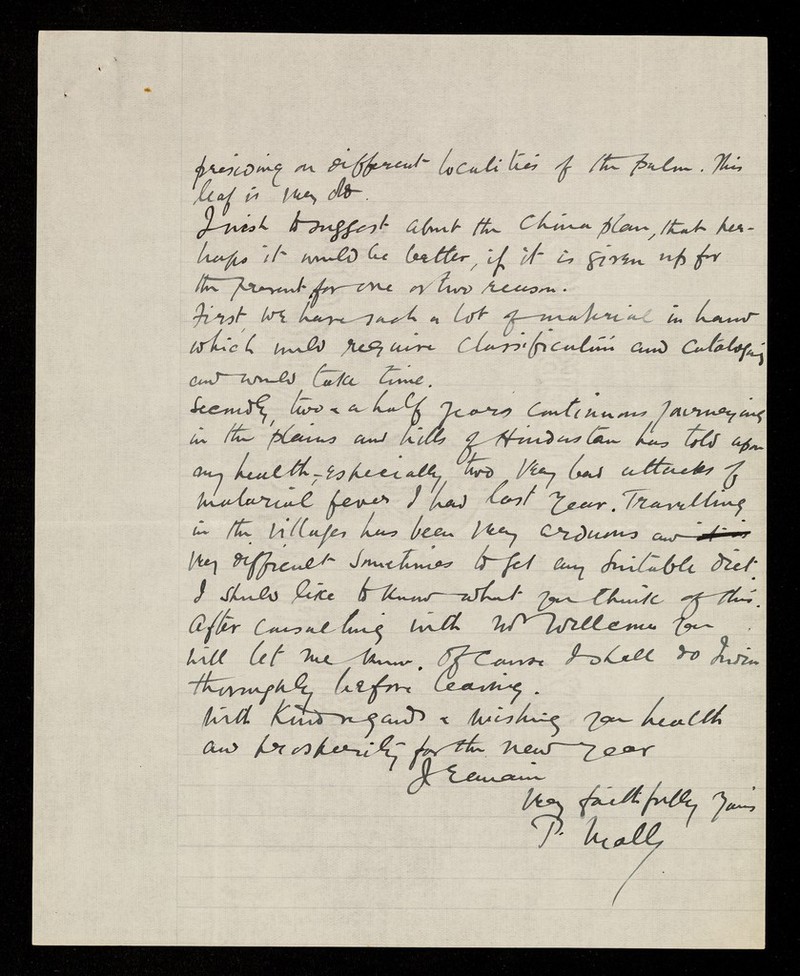 presiding on different localities of the palm. This
leaf is very old.
I wish to suggest about the China plan, that per-
haps it would be better, if it is given up for
the present, for one or two reason.
First, we have such a lot of material in hand
which would require classification and cataloging
and would take time.
Secondly, two & a half years continuous journeying
in the plains and hills of Hindustan has told upon
my health, especially, two very bad attacks of
malarial fever I had last year. Travelling
in the villages has been very arduous and
very difficult sometimes to get any suitable diet.
I should like to know what you think of this.
After consulting with Mr Wellcome you
will let me know. Of course I shall do India
thoroughly before leaving.
With kind regards & wishing you health
and prosperity for the new year
I remain
Very faithfully yours
P. Mall